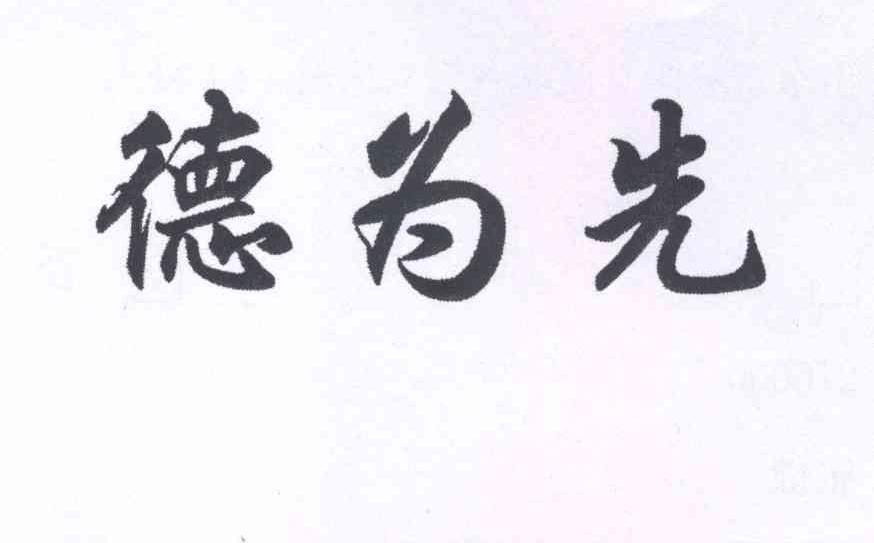 德为先